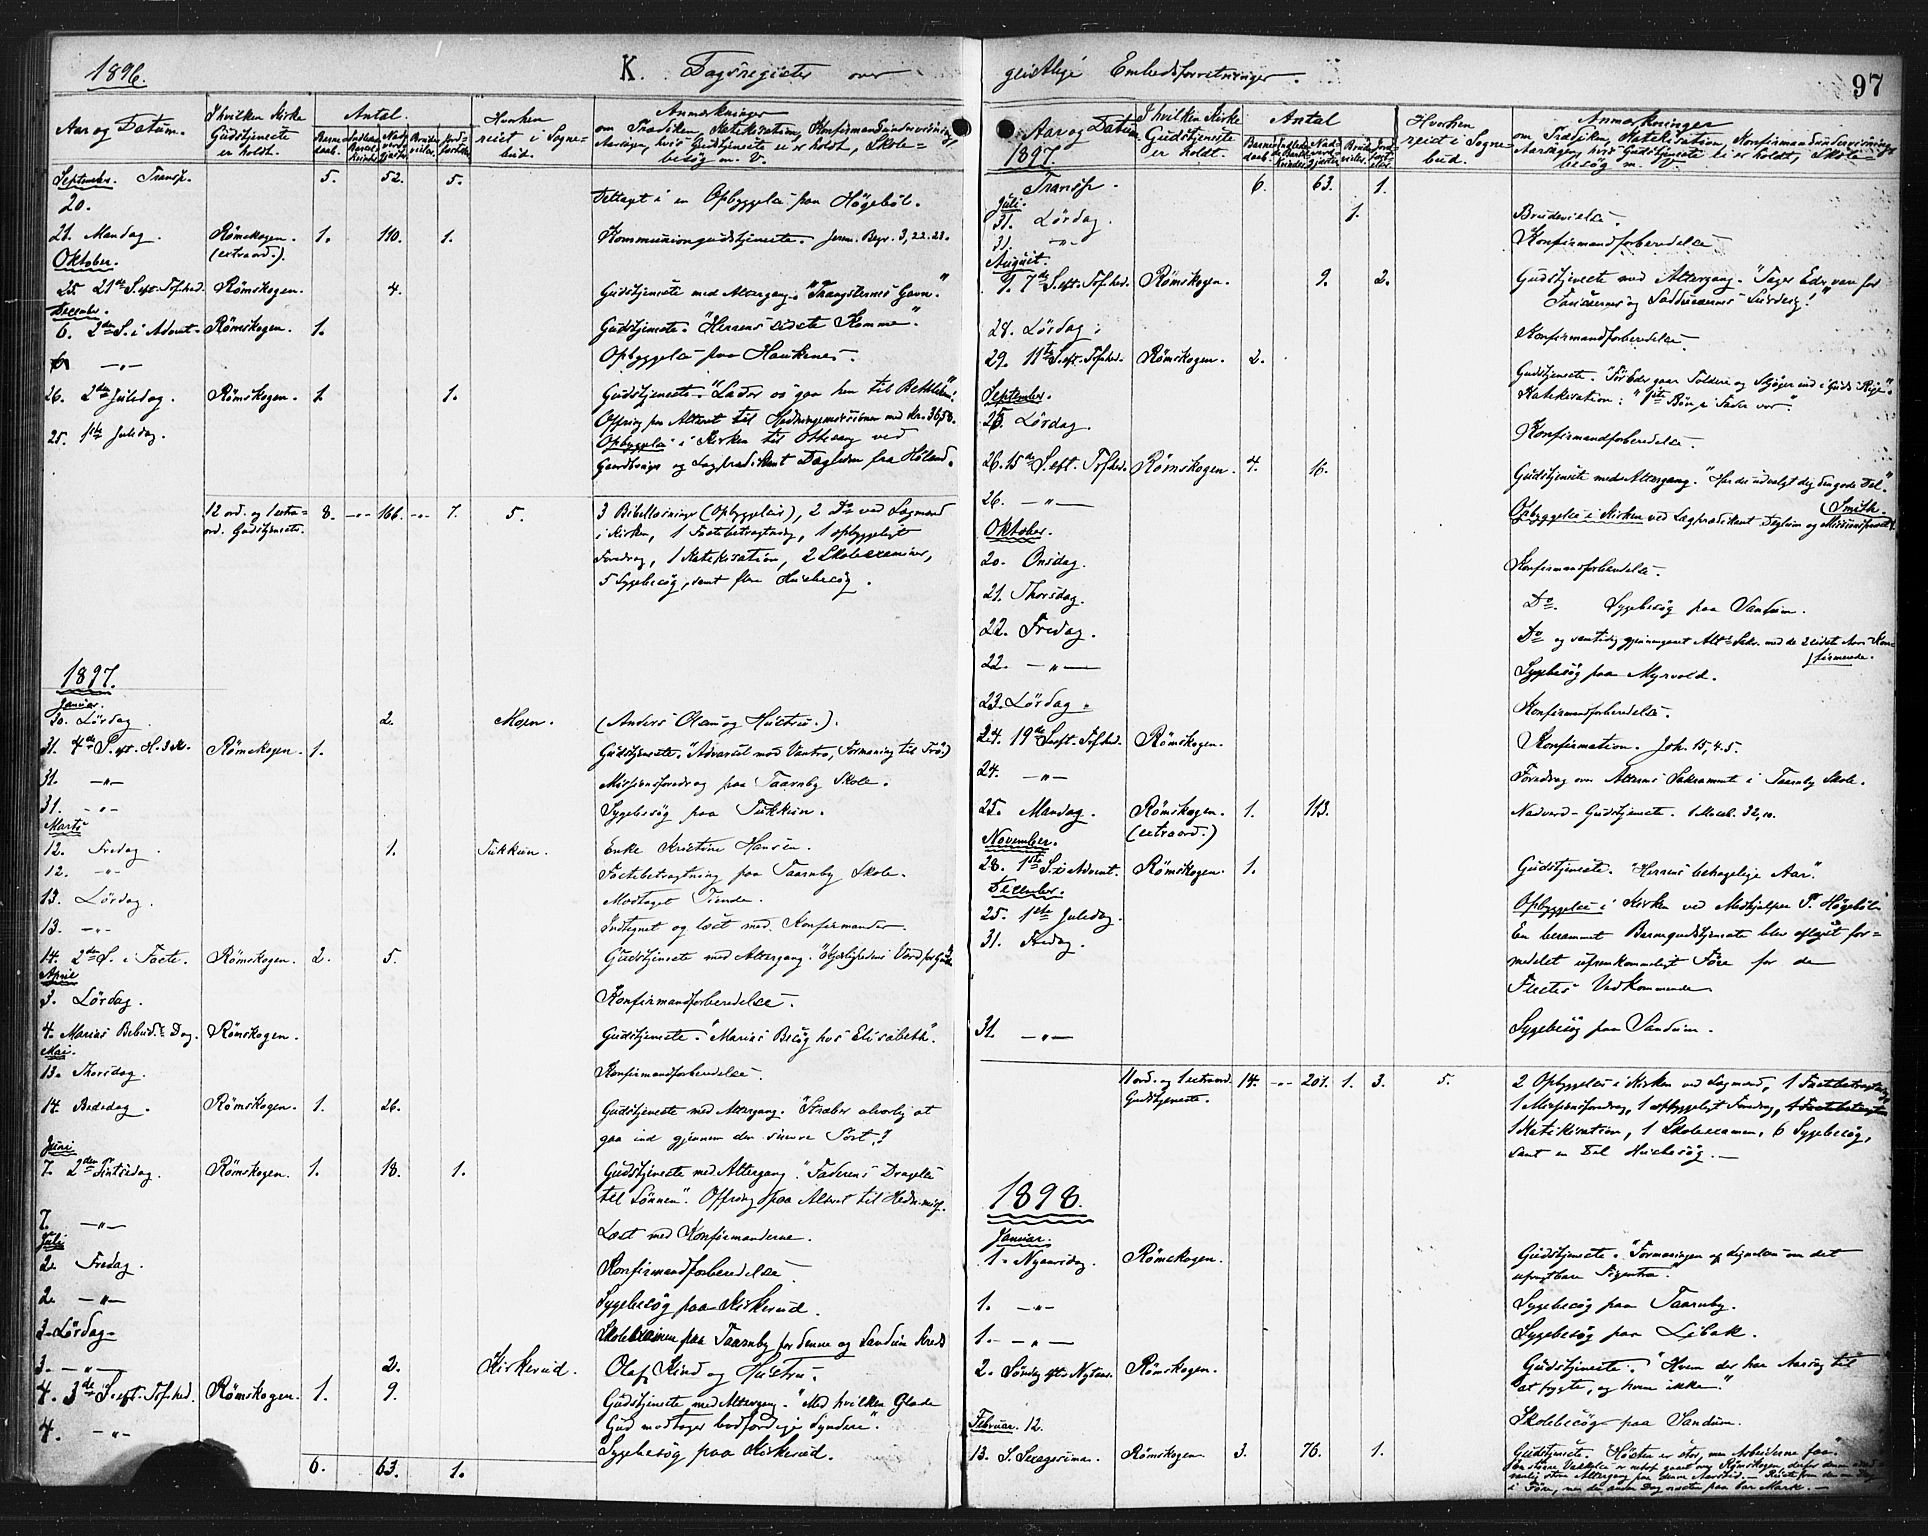 1896.
K. Dagsregister over
Aar og Datum.
I hvilken Kirke Gudstjeneste er holdt.
Antal
Barnedaab.
Indled. Barselkvinder
Nadverdgjester
Brudevielser.
Jordfæstelser
Hvorhen reist i Sognebud.
Anmærkninger
om Prædiken, Katekisation, Konfirmandundervisning,
Aarsagen, hvis Gudstjeneste ei er holdt, Skole-
besøg m. V.
September. Transp. 5. 52. 5.
20. Deltaget i en Opbyggelse paa Högeböl.
21. Mandag. Römskogen. (extraord.). 1. 110. 1. Kommuniongudstjeneste. Jerem. Begr. 3, 22-23.
Oktober.
25. 21de S. eft. Trefhed. Römskogen. 4. Gudstjeneste med Altergang. "Trængslernes Gavn."
December.
6. 2den S. i Advent. Römskogen. 1. Gudstjeneste. "Herrens sidste Komme".
6. -"- Opbyggelse paa Haukenes.
26. 2den Juledag. Römskogen. 1. 1. Gudstjeneste. "Lader os gaa hen til Bethlehem."
Offring paa Alteret til Hedningemissionen med kr. 36,58.
25. 1ste Juledag. Opbyggelse i Kirken til Ottesang ved
Gaardbruger og Lagprædikant Dagleum fra Höland.
12 ord. og 1 extraord. Gudstjeneste. 8. -"- 166. -"- 7. 5. 3 Bibellæsninger (Opbyggelser), 2 Do ved Lægmand
i Kirken, 1 Fastebetragtning, 1 opbyggeligt
Foredrag, 1 Katekisation, 2 Skoleexaminer,
5 Sygebesög, samt flere Husbesög.
1897.
Januar.
30. Lördag. 2. Moen. (Anders Olsen og Hustru.).
31. 4de S. eft. H. 3 K. Römskogen. 1. Gudstjeneste. "Advarsel mod Vantro, Formaning til Tro."
31. -"- Missionsforedrag paa Taarnby Skole.
31. -"- Sygebesög paa Tukkun.
Marts
12. Fredag. 1. Tukkun. Enke Kristine Hansen.
12. -"- Fastebetragtning paa Taarnby Skole.
13. Lördag. Modtaget Tiende.
13. -"- Indtegnet og læst med Konfirmander.
14. 2den S. i Faste. Römskogen. 2. 5. Gudstjeneste med Altergang. "Kjærlighedens Værd for Gud."
April
3. Lördag. Konfirmandforberedelse.
4. Marias Bebud. Dag. Römskogen. Gudstjeneste. "Marias Besög hos Elisabeth".
Mai.
13. Thorsdag. Konfirmandforberedelse.
14. Bededag. Römskogen. 1. 26. Gudstjeneste med Altergang. "Stræber alvorlig at
gaa ind gjennem den snevre Port."
Juni
7. 2den Pintsedag. Römskogen. 1. 18. 1. Gudstjeneste med Altergang. "Faderens Dragelse
til Sönnen". Offring paa Alteret til Hedn.miss.
7. -"- Læst med Konfirmanderne.
Juli
2. Fredag. Konfirmandforberedelse
2. -"- Sygebesög paa Kirkerud.
3. Lördag. Skoleexamen paa Taarnby for denne og Sandum Kreds
3. -"- 2. Kirkerud. Olaf Kind og Hustru.
4. 3de S. eft. Trefhed. Römskogen. 1. 9. Gudstjeneste med Altergang. "Med hvilken Glæde
Gud modtager bodfærdige Syndere".
4. -"- Sygebesög paa Kirkerud.
6. 63. 1.
geistlige Embedsforretninger.
97
Aar og Datum
1897.
I hvilken Kirke Gudstjeneste er holdt.
Antal
Barnedaab.
Hvorhen reist i Sognebud.
Anmærkninger
om Prædiken, Katekisation, Konfirmandundervisning,
Aarsagen, hvis Gudstjeneste ei er holdt, Skole-
besög m. V.
Transp. 6. 63. 1.
Juli.
31. Lördag. 1. Brudevielse.
31. -"- Konfirmandforberedelse
August.
1. 7de S. eft. Trefhed. Römskogen. 9. 2. Gudstjeneste med Altergang. "Tager Eder vare for
Farisæernes og Sadducæernes Surdeig!"
28. Lördag. Konfirmandforberedelse.
29. 11te S. eft. Trefhed. Römskogen. 2. Gudstjeneste. "För Eder gaar Toldere og Skjöger ind i Guds Rige."
Katekisation: "1ste Bön i Fader vor".
September.
25. Lördag. Konfirmandforberedelse.
26. 15de S. eft. Trefhed. Römskogen. 4. 16. Gudstjeneste med Altergang. "Har du udvalgt dig den gode Del."
26. -"- Opbyggelse i Kirken ved Lægprædikant Dagleum og Missionsprest (Smith.
Oktober.
20. Onsdag. Konfirmandforberedelse.
21. Thorsdag. Do. Sygebesög paa Sandum.
22. Fredag. Do og samtidig gjennemgaaet Alt. Sakr. med de sidst Aars Konfirmerede.
22. -"- Sygebesög paa Myrvold.
23. Lördag. Konfirmandforberedelse.
24. 19de S. eft. Trefhed. Römskogen. Konfirmation. Joh. 15, 4.5.
24. -"- Foredrag over Alterens Sakramente i Taarnby Skole.
25. Mandag. Römskogen. (extraord.) 1. 113. Nadverd-Gudstjeneste. 1 Moseb. 32, 10.
November.
28. 1ste S. i Advent. Römskogen. 1. Gudstjeneste. "Herrens behagelige Aar".
December.
25. 1ste Juledag. Opbyggelse i Kirken ved Medhjælper P. Högeböl
31. Fredag. En berammet Barnegudstjeneste blev aflyst for-
medelst ufremkommeligt Före for de
Flestes Vedkommende
31. -"- Sygebesög paa Sandum.
11 ord. og 1 extraord. Gudstjeneste. 14. -"- 201. 1. 3. 5. 2 Opbyggelser i Kirken ved Lægmand, 1 Fastebetragtning
1 Missionsforedrag, 1 opbyggeligt Foredrag, 1 Fastebetragtn
1 Katekisation, 1 Skoleexamen, 6 Sygebesög,
samt en Del Husbesög.
1898.
Januar.
1. Nyaarsdag. Römskogen. Gudstjeneste. "Formaningen og Lignelsen om det
ufrugtbare Figentræ."
1. -"- Sygebesög paa Taarnby.
1. -"- Sygebesög paa Libak.
2. Söndag eft. Nytaar. Römskogen. Gudstjeneste. "Hvem der har Aarsag til
at frygte, og hvem ikke."
Februar. 12. Skolebesög paa Sandum.
13. S. Sexagesima. Römskogen. 3. 76. 1. Gudstjeneste. "Hösten er stor, men Arbeiderne faa."